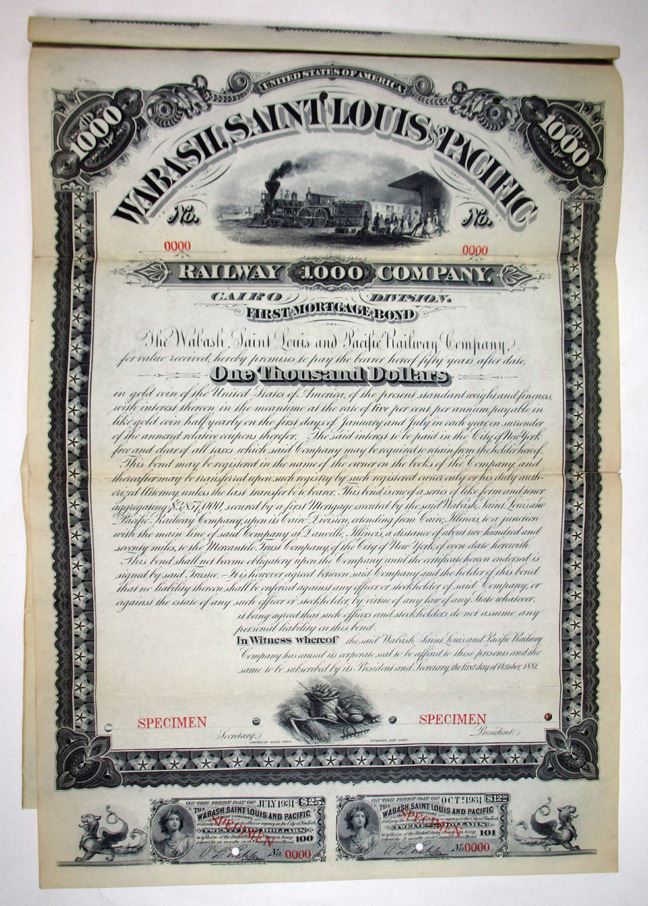 UNITED STATES OF AMERICA.
1000 1000
WABASH, SAINT LOUIS AND PACIFIC
No. No.
0000 0000
RAILWAY 1000 COMPANY,
CAIRO DIVISION.
FIRST MORTGAGE BOND
The Wabash, Saint Louis and Pacific Railway Company,
for value received, hereby promises to pay the bearer hereof fifty years after date,
One Thousand Dollars
in gold coin of the United States of America, of the present standard weight and fineness,
with interest thereon in the meantime at the rate of five per cent. per annum, payable in
like gold coin half yearly on the first days of January and July in each year, on surrender
of the annexed relative coupons therefor. The said interest to be paid in the City of New York
free and clear of all taxes which said Company may be required to retain from the holder hereof.
This bond may be registered in the name of the owner on the books of the Company, and
thereafter may be transferred upon such registry by such registered owner only or his duly auth-
orized Attorney, unless the last transfer be to bearer. This bond is one of a series of like form and tenor
aggregating secured by a first Mortgage executed by the said Wabash, Saint Louis and
Pacific Railway Company, upon its Cairo Division, extending from Cairo, Illinois, to a junction
with the main line of said Company at Danville, Illinois, a distance of about two hundred and
seventy miles, to the Mercantile Trust Company of the City of New York, of even date herewith.
This bond shall not become obligatory upon the Company until the certificate hereon endorsed is
signed by said Trustee. It is however agreed between said Company and the holder of this bond
that no liability thereon shall be enforced against any officer or stockholder of said Company, or
against the estate of any such officer or stockholder, by virtue of any law of any State whatever,
it being agreed that such officers and stockholders do not assume any
personal liability on this bond.
In Witness whereof the said Wabash, Saint Louis and Pacific Railway
Company has caused its corporate seal to be affixed to these presents and the
same to be subscribed by its President and Secretary, the first day of October, 1881.
SPECIMEN SPECIMEN
Secretary. President.
ON THE FIRST DAY OF JULY 1931 $25.
THE WABASH SAINT LOUIS AND PACIFIC
SPECIMEN
100
No. 0000
ON THE FIRST DAY OF OCT. 1931
THE WABASH SAINT LOUIS AND PACIFIC
SPECIMEN
101
No. 0000